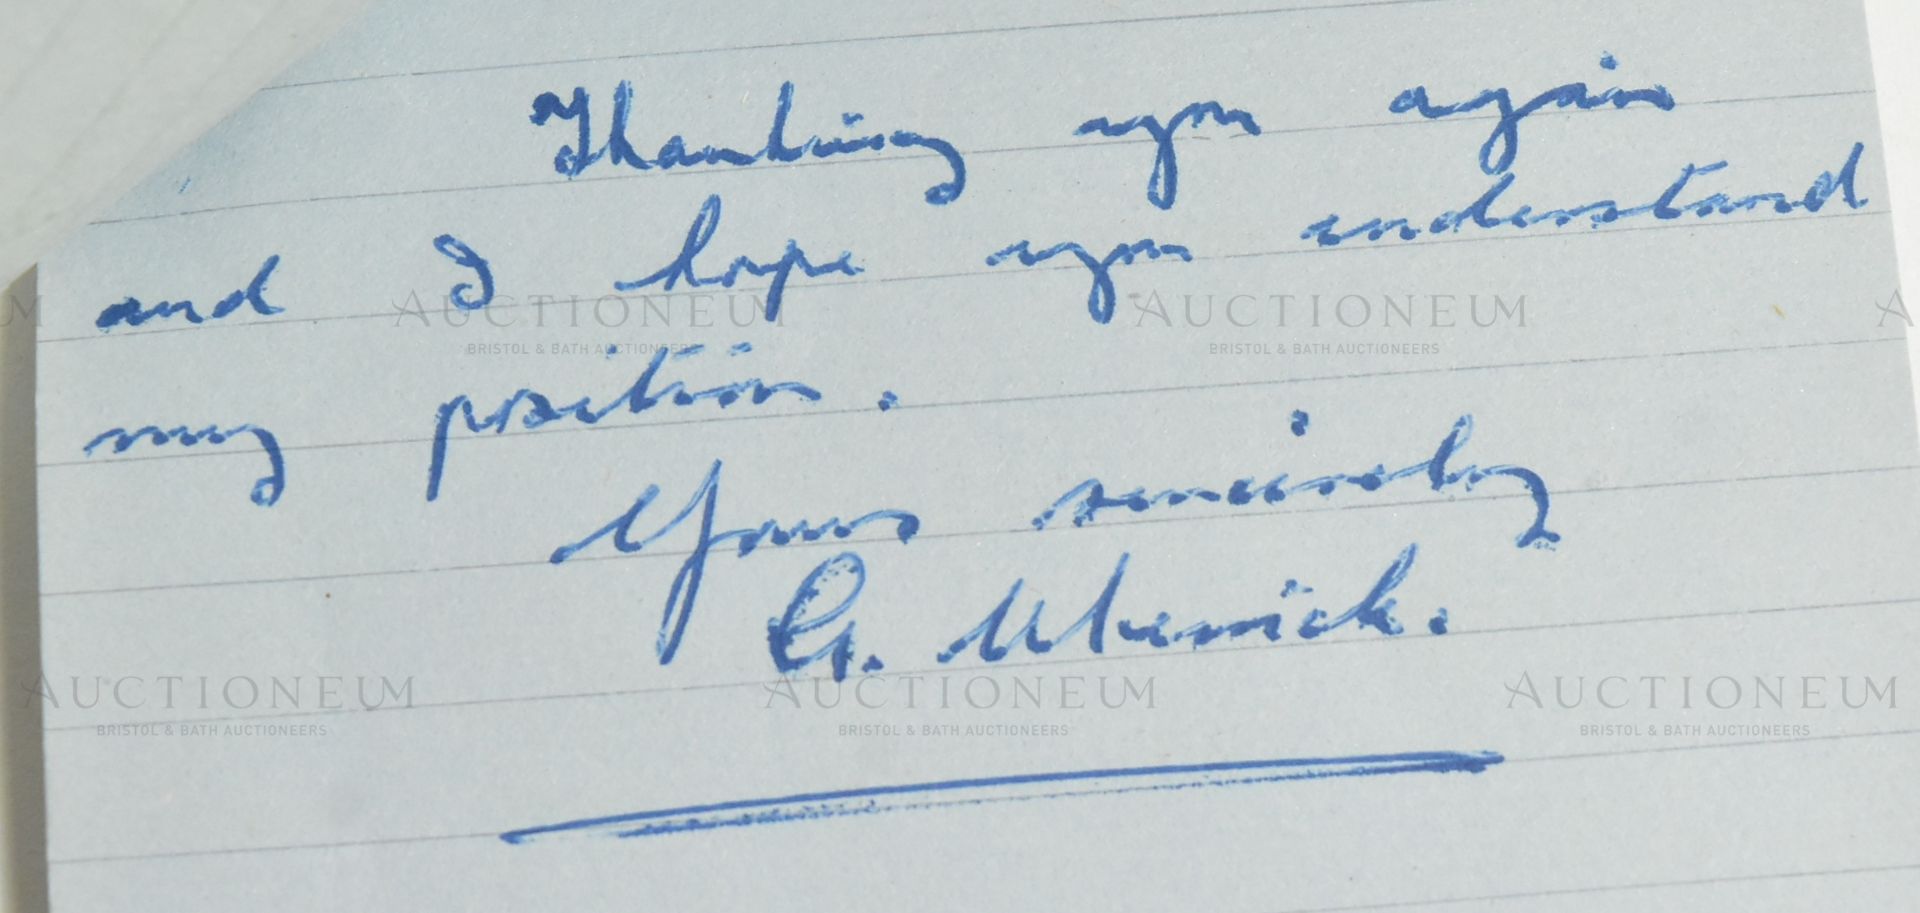 Thanking you again
and I hope you understand
my position.
Yours sincerely
G.
AUCTIONEUM AUCTIONEUM
BRISTOL & BATH AUCTIONEERS BRISTOL & BATH AUCTIONEERS
AUCTIONEUM AUCTIONEUM AUCTIONEUM
BRISTOL & BATH AUCTIONEERS BRISTOL & BATH AUCTIONEERS BRISTOL & BATH AUCTIONEERS